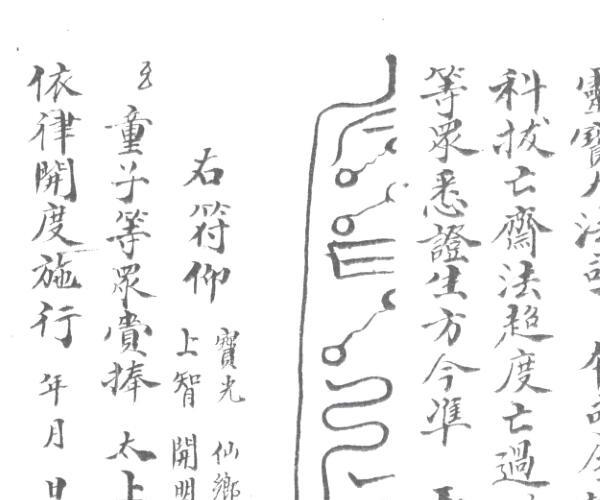 靈寶大法司
科拔亡齋法超度亡過
等眾悉證生方今準
右符仰
寶光 仙鄉
上智 開明
童子等眾賫捧 太上
依律開度施行 年 月 日